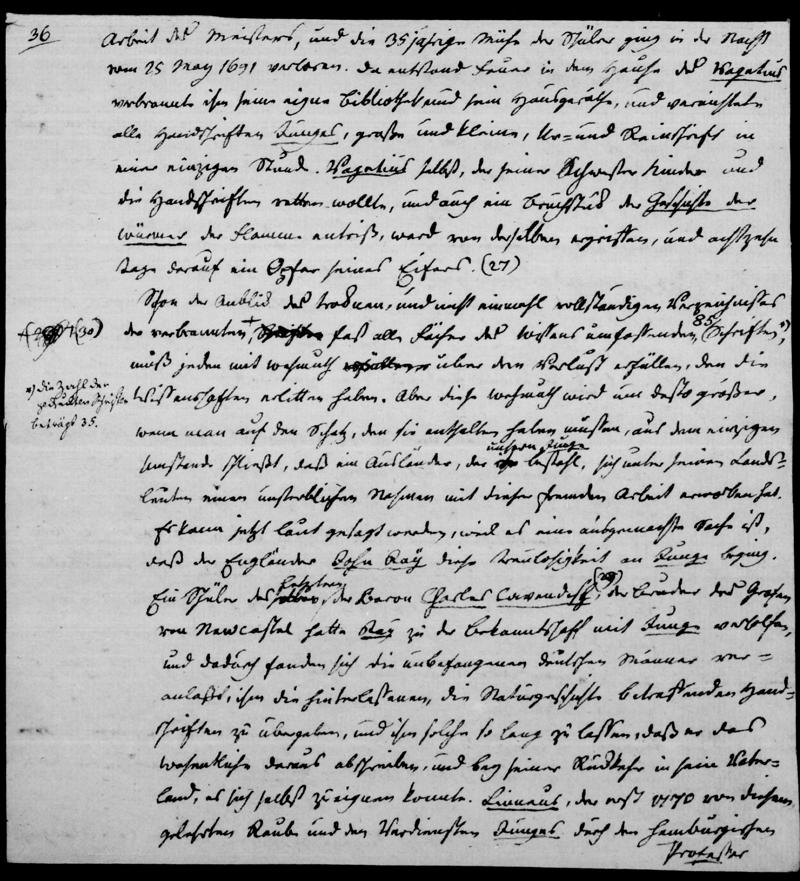 36
Arbeit des Meisters, und die 35 jährige Mühe der Schüler ging in der Nacht
vom 25 May 1691 verloren. Da entstand Feuer in dem Hause des Vagetius
verbrannte ihm seine eigne Bibliothek und sein Hausgeräthe, und vernichtete
alle Handschriften Junges, große und kleine, Ur= und Reinschrift in
einer einzigen Stunde. Vagetius selbst, der seiner Schwester Kinder und
die Handschriften retten wollte, und auch ein Bruchstük der Geschichte der
Würmer der Flamme entriß, ward von derselben ergriffen, und achtzehn
Tage darauf ein Opfer seines Eifers. (27)
Schon der Anblik des troknen, und nicht einmahl vollständigen Verzeichnisses
der verbrannten, fast alle Fächer des Wissens umfassenden 85 Schriften
muß jeden mit Wehmuth über den Verlust erfüllen, den die
Wissenschaften erlitten haben. Aber diese Wehmuth wird um desto größer,
wenn man auf den Schatz, den sie enthalten haben mußten, aus dem einzigen
Umstande schließt, daß ein Ausländer, der unsern Junge bestahl, sich unter seinen Lands=
leuten einen unsterblichen Nahmen mit dieser fremden Arbeit erworben hat.
Es kann jetzt laut gesagt werden, weil es eine ausgemachte Sache ist,
daß der Engländer John Ray diese Treulosigkeit an Junge beging.
Ein Schüler des letztern, der Baron Charles Cavendish, der Bruder des Grafen
von Newcastel hatte Ray zu der Bekanntschaft mit Junge verholfen,
und dadurch fanden sich die unbefangenen deutschen Männer ver=
anlaßt, ihm die hinterlassenen, die Naturgeschichte betreffenden Hand=
schriften zu übergeben, und ihm solche so lang zu lassen, daß er das
Wesentliche daraus abschreiben, und bey seiner Rükkehr in sein Vater=
land, es sich selbst zueignen konnte. Linneus, der erst 1770 von diesem
gelehrten Raube und den Verdiensten Junges durch den hamburgischen
Professor
(30)
*) die Zahl der
gedrukten Schriften
beträgt 35.